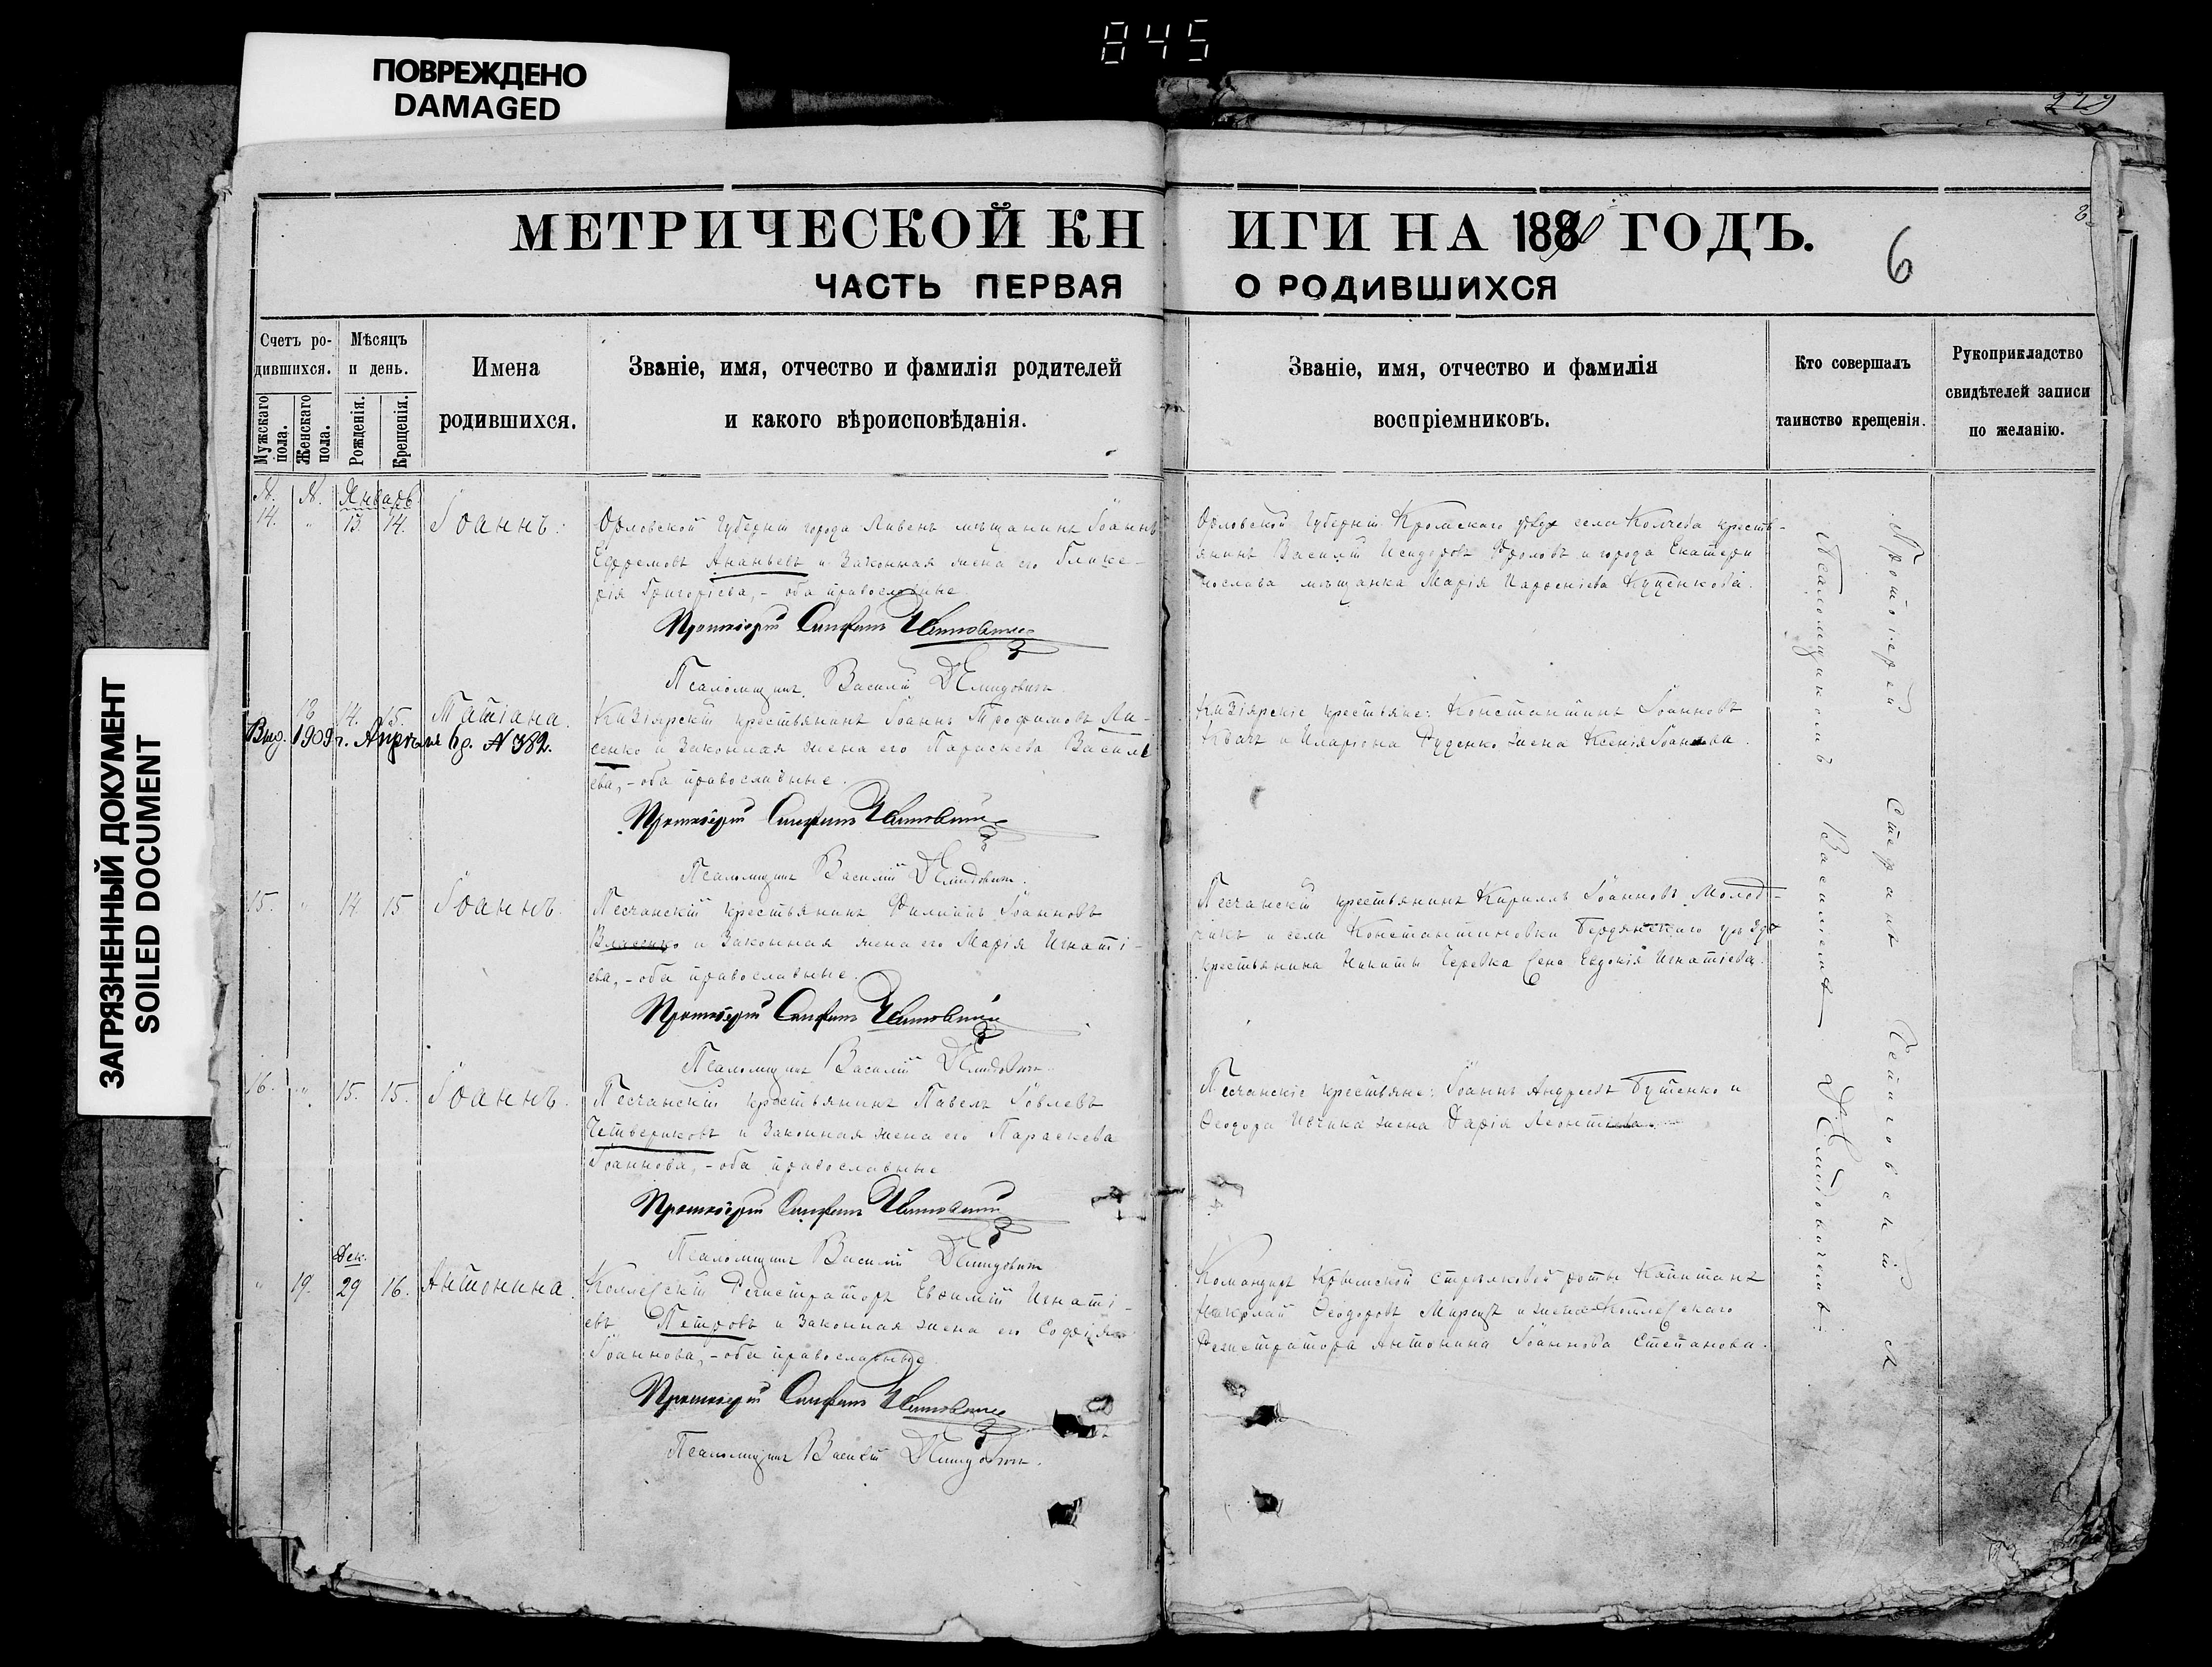 845
ПОВРЕЖДЕНО
DAMAGED
ЗАГРЯЗНЕННЫЙ ДОКУМЕНТ
SOILED DOCUMENT
229
МЕТРИЧЕСКОЙ КНИГИ НА 1880 ГОДЪ.
6
ЧАСТЬ ПЕРВАЯ О РОДИВШИХСЯ
Счетъ ро-
дившихся.
Мужскаго пола.
Женскаго пола.
Мѣсяцъ
и день.
Рожденія.
Крещенія.
Имена
родившихся.
Званіе, имя, отчество и фамилія родителей
и какого вѣроисповѣданія.
Званіе, имя, отчество и фамилія
воспріемниковъ.
Кто совершалъ
таинство крещенія.
Рукоприкладство
свидѣтелей записи
по желанію.
№. №. Январь
14. " 13. 14. Іоаннъ.
Орловской губерніи города Ливенъ мѣщанинъ Іоаннъ
Ефремовъ Ананьевъ и законная жена его Глике-
рія Григоріева, - оба православные
Протоіерей Стефанъ
Псаломщикъ Василій Демидовичъ.
Орловской губерніи Кромскаго уѣзда села кресть-
янинъ Василій Исидоровъ Фроловъ и города Екатери
нослава мѣщанка Марія Парѳеніева Куценкова.
18 14. 15. Татіана.
Выд. 1909 г. Апрѣля 6 д. № 382.
Кизіярскій крестьянинъ Іоаннъ Трофимовъ Ли-
сенко и законная жена его Параскева Василь
ева, - оба православные.
Протоіерей Стефанъ
Псаломщикъ Василій Демидовичъ.
Кизіярскіе крестьяне: Константинъ Іоанновъ
Квачъ и Иларіона Руденко жена Ксенія Іоаннова.
15. " 14. 15 Іоаннъ.
Песчанскій крестьянинъ Филиппъ Іоанновъ
Власенко и законная жена его Марія Игнаті-
ева, - оба православные.
Протоіерей Стефанъ
Псаломщикъ Василій Демидовичъ.
Песчанскій крестьянинъ Кириллъ Іоанновъ Молод-
чикъ и села Константиновки Бердянскаго уѣзда
крестьянина Никиты Черевка жена Евдокія Игнатіева.
16. " 15. 15. Іоаннъ.
Песчанскій крестьянинъ Павелъ Іовлевъ
Четвериковъ и законная жена его Параскева
Іоаннова, - оба православные
Протоіерей Стефанъ
Псаломщикъ Василій Демидовичъ
Песчанскіе крестьяне: Іоаннъ Андреевъ Бутенко и
Ѳеодора жена Дарія Леонтіева.
Дек.
" 19. 29 16. Антонина.
Коллежскій Регистраторъ Евѳимій Игнаті-
евъ Петровъ и законная жена его Софія
Іоаннова, - оба православные
Протоіерей Стефанъ
Псаломщикъ Василій Демидовичъ.
Командиръ Крымской стрѣлковой роты Капитанъ
Николай Ѳеодоровъ и жена Коллежскаго
Регистратора Антонина Іоаннова Степанова.
Протоіерей Стефанъ
съ Псаломщикомъ Василіемъ Демидовичемъ.